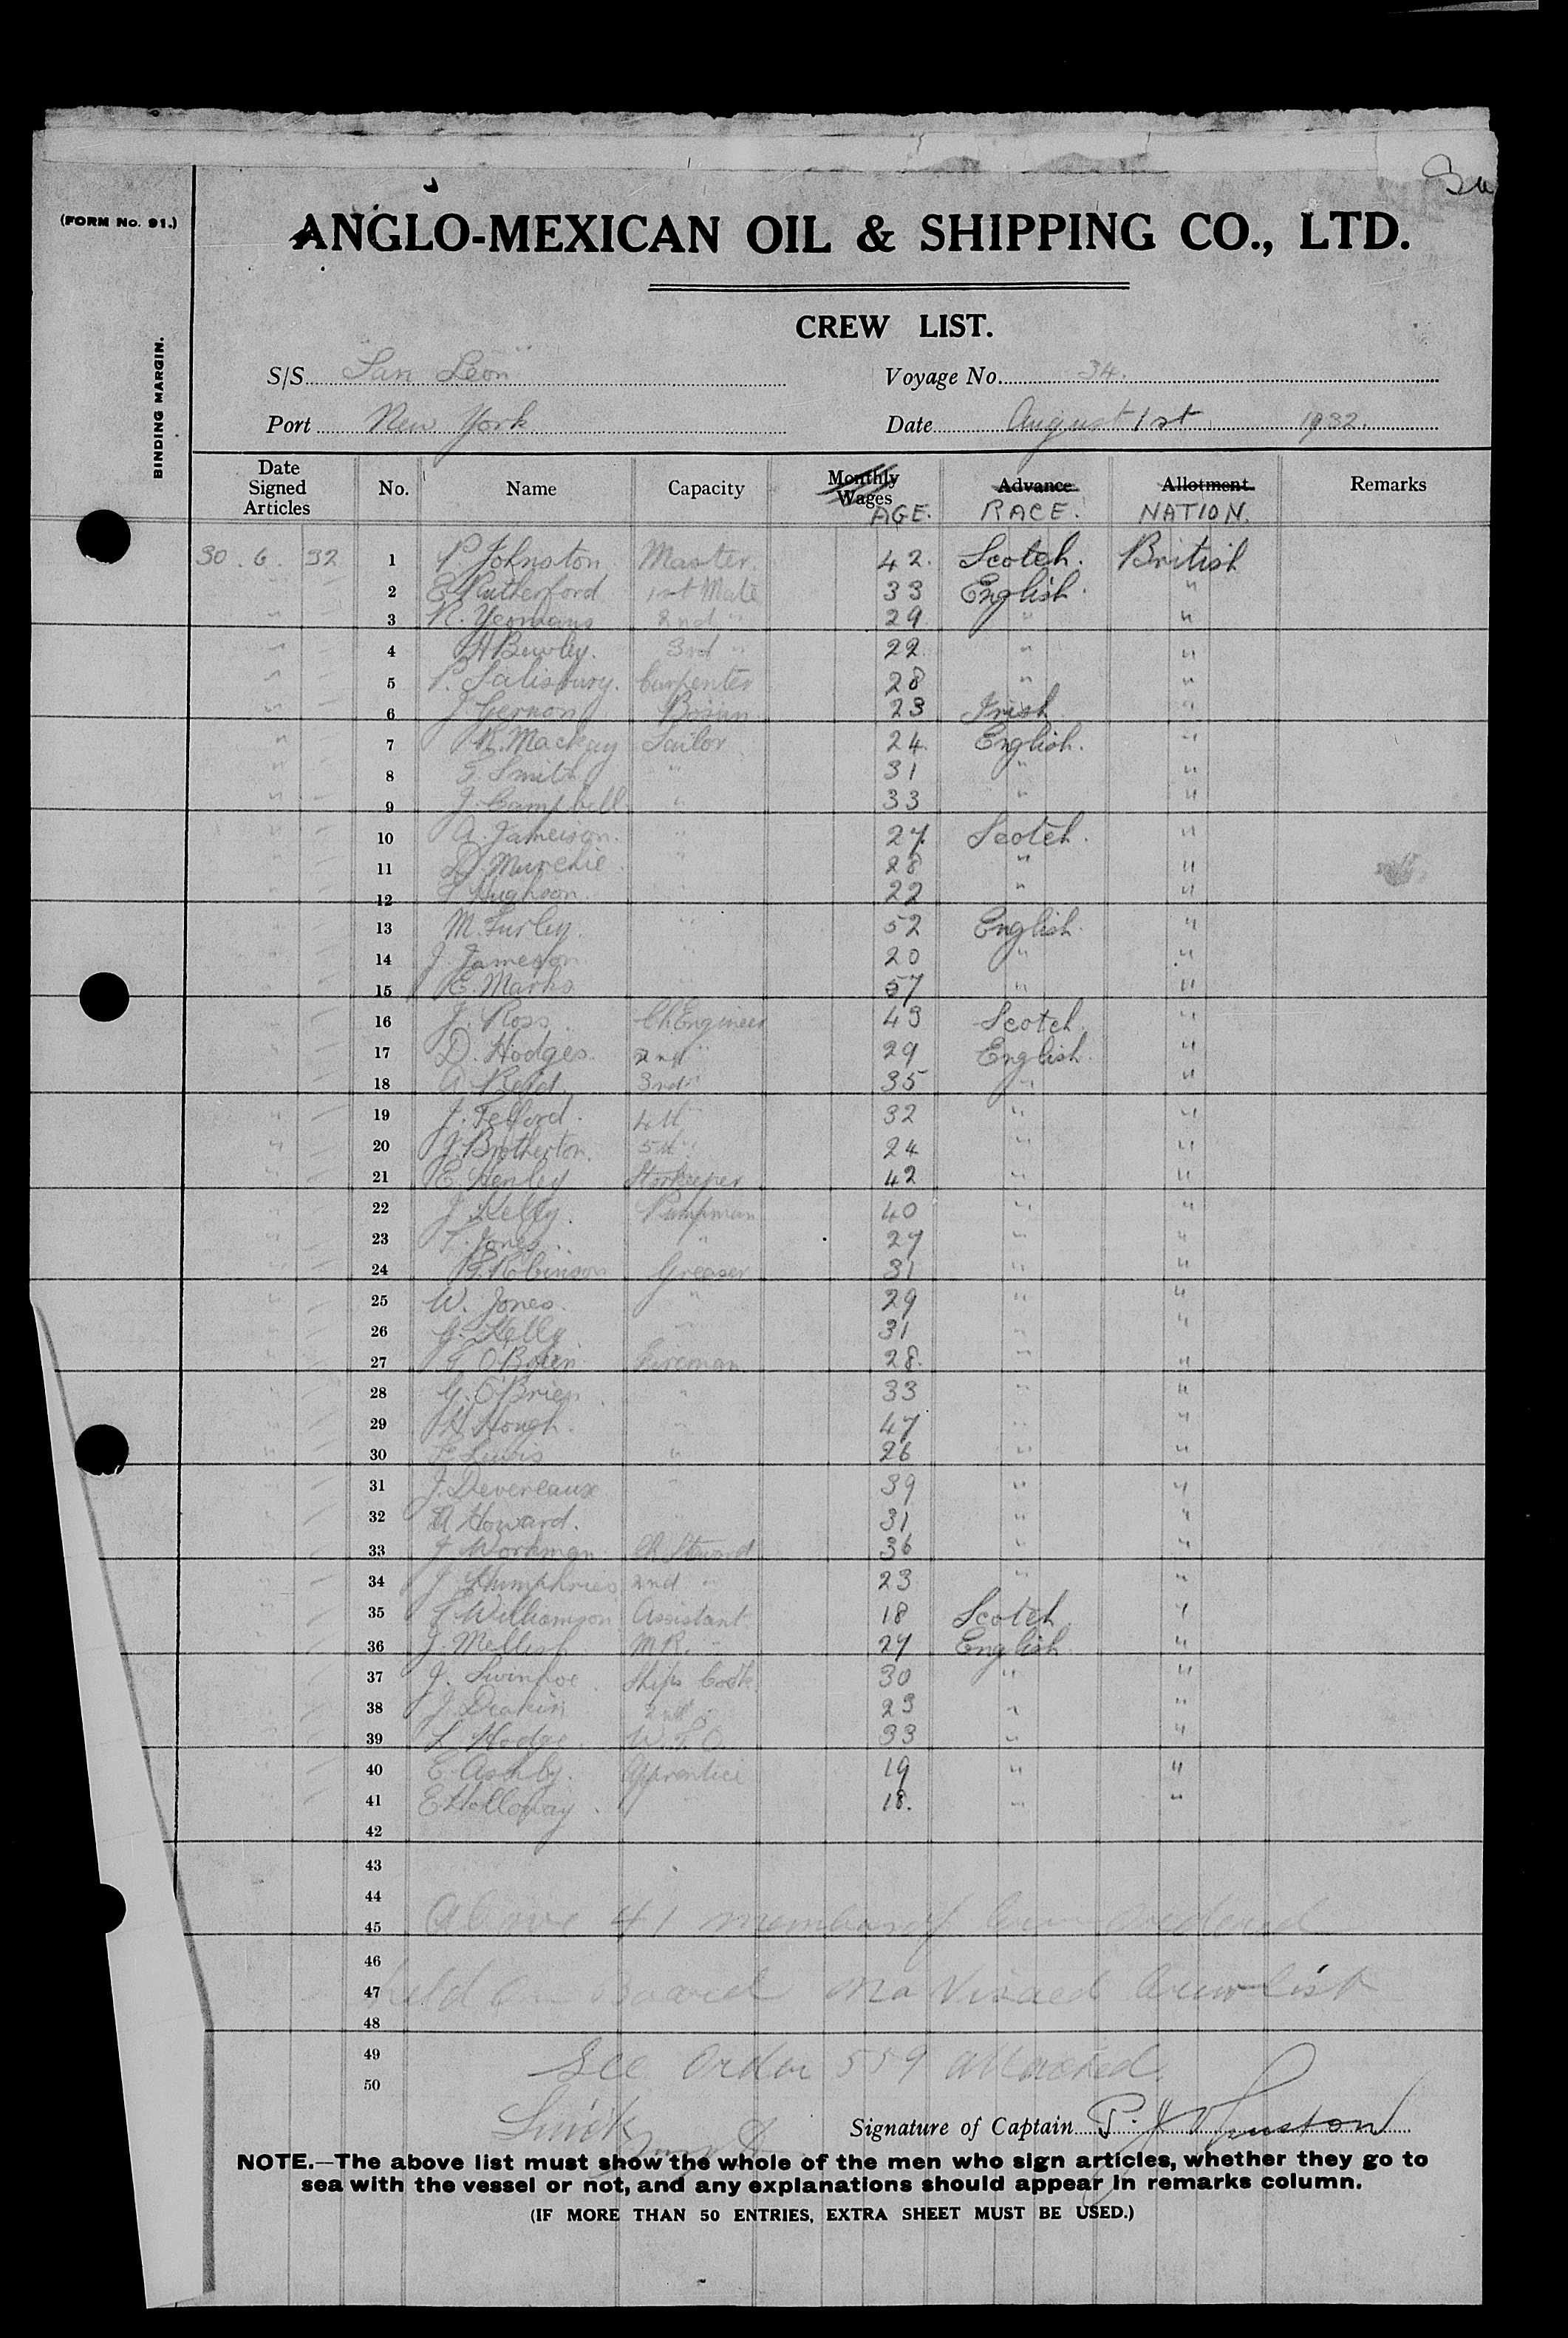 (FORM No. 91.)
BINDING MARGIN.
ANGLO-MEXICAN OIL & SHIPPING CO., LTD.
CREW LIST.
S/S "San Leon" Voyage No. 34.
Port New York Date August 1st 1932.
Date Signed Articles No. Name Capacity Monthly Wages AGE. Advance RACE. Allotment NATION. Remarks
30 . 6 . 32 1 P. Johnston Master. 42. Scotch. British
2 E. Rutherford 1st Mate 33 English. "
" 3 R. Yeomans 2nd " 29 " "
" 4 H Bewley. 3rd " 22 " "
" 5 P. Salisbury. Carpenter 28 " "
" 6 J Gernon Bosun. 23 Irish "
" 7 R. Mackay Sailor 24. English. "
" 8 Smith " 31 " "
" 9 J. Campbell " 33 " "
" 10 A. Jameison. " 27. Scotch. "
" 11 D. Murchie " 28 " "
" 12 Hughson. " 22 " "
" 13 M. Furley. " 52 English. "
" 14 J. Jameson. 20 " "
" 15 E. Marks 57 " "
" 16 J. Ross. Ch Engineer 43 Scotch "
" 17 D. Hodges. 2nd " 29 English. "
" 18 A. Reid. 3rd " 35 " "
" 19 J. Telford. 4th " 32 " "
" 20 J. Brotherton. 5th " 24 " "
" 21 E. Henley Storkeeper 42 " "
" 22 J. Kelly. Pumpman 40 " "
" 23 Jones " 27 " "
" 24 Robinson Greaser 31 " "
" 25 W. Jones. " 29 " "
" 26 Kelly " 31 " "
" 27 O'Brien Fireman 28. " "
" 28 G. O'Brien " 33 " "
" 29 H. Hough. " 47 " "
" 30 Lewis " 26 " "
" 31 J. Devereaux " 39 " "
" 32 A Howard. " 31 " "
" 33 J Workman Ch Steward 36 " "
" 34 J Humphries 2nd " 23 " "
" 35 Williamson Assistant 18 Scotch "
" 36 J. Mellish M.R. " 27 English "
37 J. Swinhoe Ships Cook. 30 " "
38 J. Deakin 2nd " 23 " "
39 L Hodge W.T.O. 33 " "
40 E. Ashby. Apprentice 19 " "
41 E Holloway. " 18. " "
42
43
44
45 Above 41 members of Crew ordered
46
47 held on Board no Visaed Crew list
48
49 See Order 559 attached.
50
Signature of Captain P. Johnston
NOTE.—The above list must show the whole of the men who sign articles, whether they go to
sea with the vessel or not, and any explanations should appear in remarks column.
(IF MORE THAN 50 ENTRIES, EXTRA SHEET MUST BE USED.)